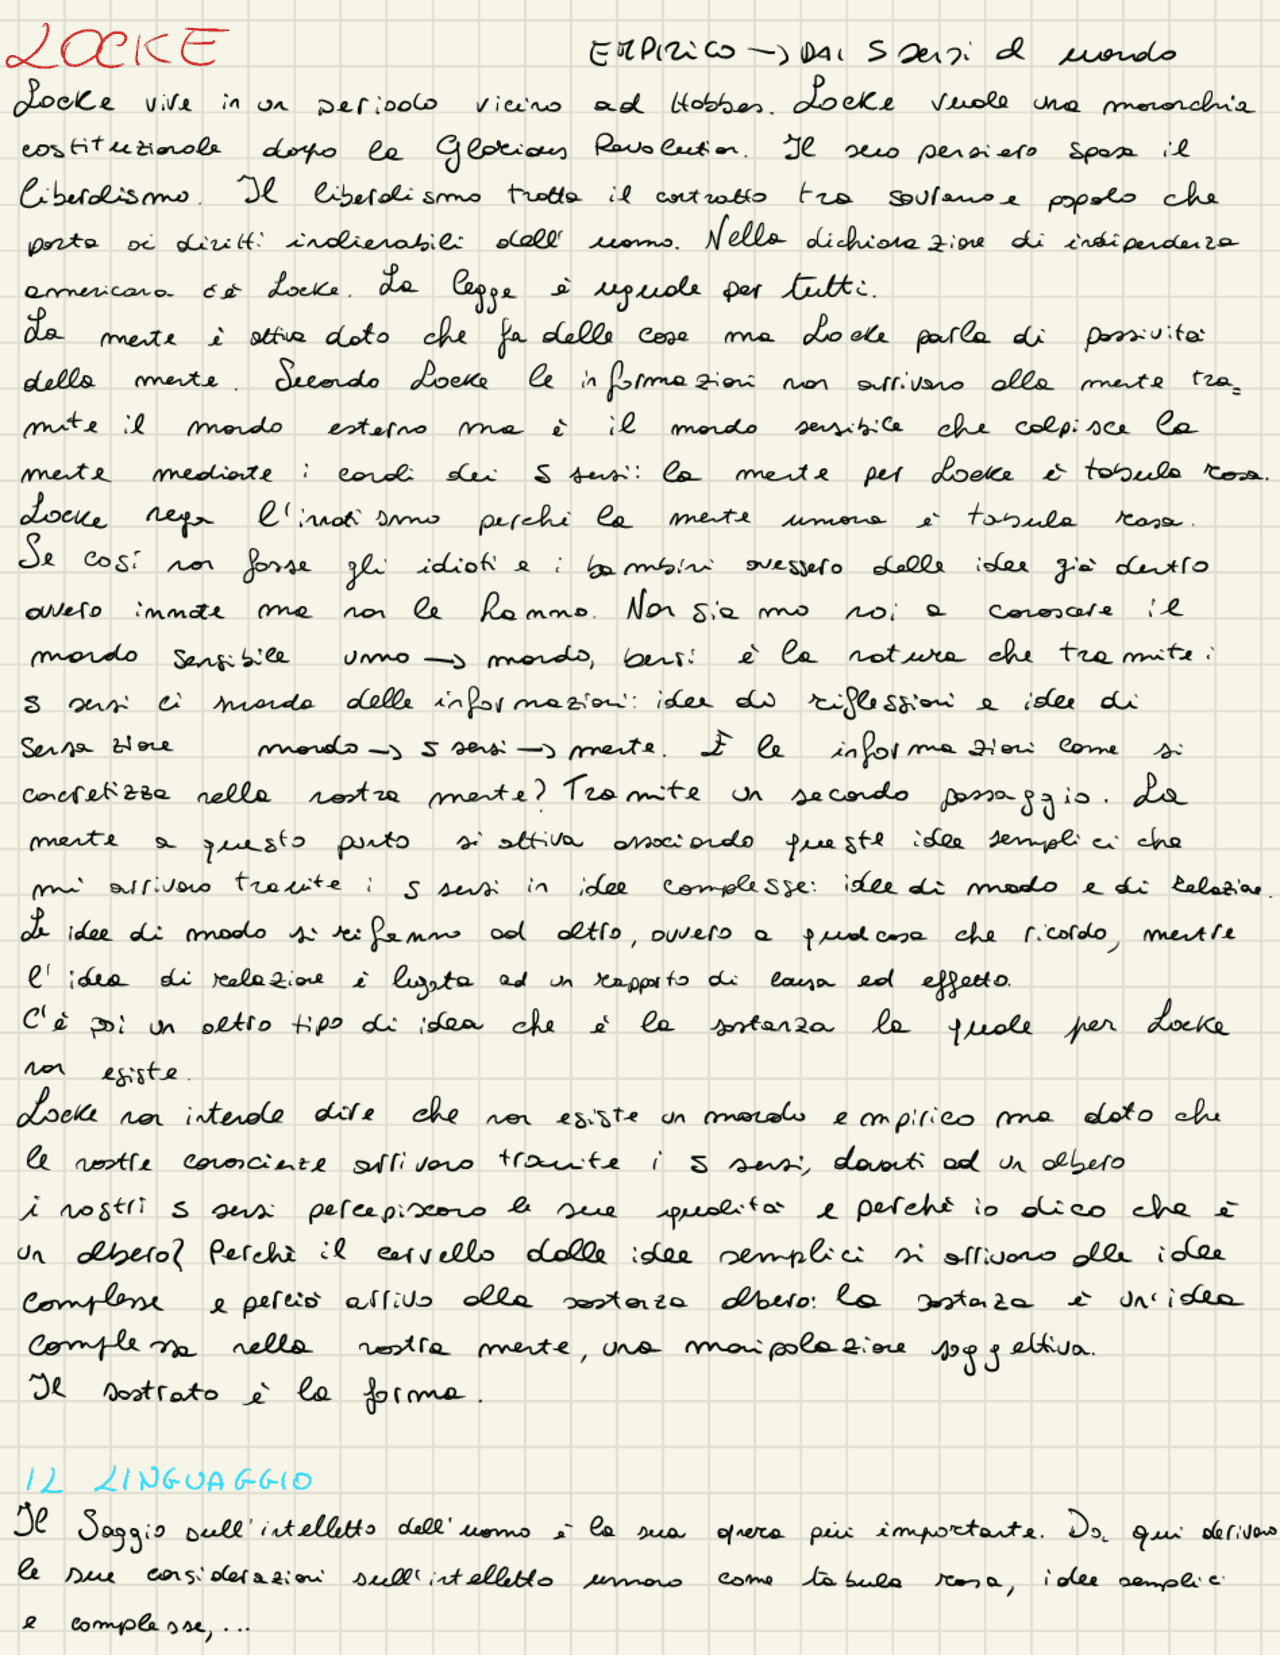 LOCKE
EMPIRICO → DAI 5 sensi al mondo
Locke vive in un periodo vicino ad Hobbes. Locke vuole una monarchia
costituzionale dopo la Glorious Revolution. Il suo pensiero sposa il
liberalismo. Il liberalismo tratta il contratto tra sovrano e popolo che
porta ai diritti inalienabili dell'uomo. Nella dichiarazione di indipendenza
americana c'è Locke. La legge è uguale per tutti.
La mente è attiva dato che fa delle cose ma Locke parla di passività
della mente. Secondo Locke le informazioni non arrivano alla mente tra=
mite il mondo esterno ma è il mondo sensibile che colpisce la
mente mediante i canali dei 5 sensi: la mente per Locke è tabula rasa.
Locke nega l'innatismo perché la mente umana è tabula rasa.
Se così non fosse gli idioti e i bambini avessero delle idee già dentro
ovvero innate ma non le hanno. Non siamo noi a conoscere il
mondo sensibile uomo → mondo, bensì è la natura che tramite i
5 sensi ci manda delle informazioni: idee di riflessioni e idee di
sensazione mondo → 5 sensi → mente. E le informazioni come si
concretizza nella nostra mente? Tramite un secondo passaggio. La
mente a questo punto si attiva associando queste idee semplici che
mi arrivano tramite i 5 sensi in idee complesse: idee di modo e di relazione.
Le idee di modo si rifanno ad altro, ovvero a qualcosa che ricordo, mentre
l'idea di relazione è legata ad un rapporto di causa ed effetto.
C'è poi un altro tipo di idea che è la sostanza la quale per Locke
non esiste.
Locke non intende dire che non esiste un mondo empirico ma dato che
le nostre conoscienze arrivano tramite i 5 sensi, davanti ad un albero
i nostri 5 sensi percepiscono le sue qualità e perché io dico che è
un albero? Perché il cervello dalle idee semplici si arrivano alle idee
complesse e perciò arrivo alla sostanza albero: la sostanza è un'idea
complessa nella nostra mente, una manipolazione soggettiva.
Il sostrato è la forma.
IL LINGUAGGIO
Il Saggio sull'intelletto dell'uomo è la sua opera più importante. Da qui derivano
le sue considerazioni sull'intelletto umano come tabula rasa, idee semplici
e complesse, ...